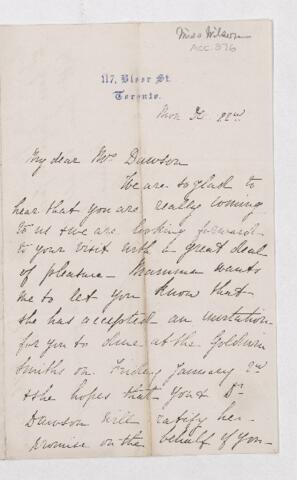 Miss Wilson
ACC. 976
117, Bloor St.
Toronto.
Mon D. 22nd
My dear Mrs Dawson
We are so glad to
hear that you are really coming
to us & we are looking forward
to your visit with a great deal
of pleasure – Mamma wants
me to let you know that
she has accepted an invitation
for you to dine at the Goldwin
Smiths on Friday January 2nd
& she hopes that you & Dr
Dawson will ratify her
promise on the behalf of you–